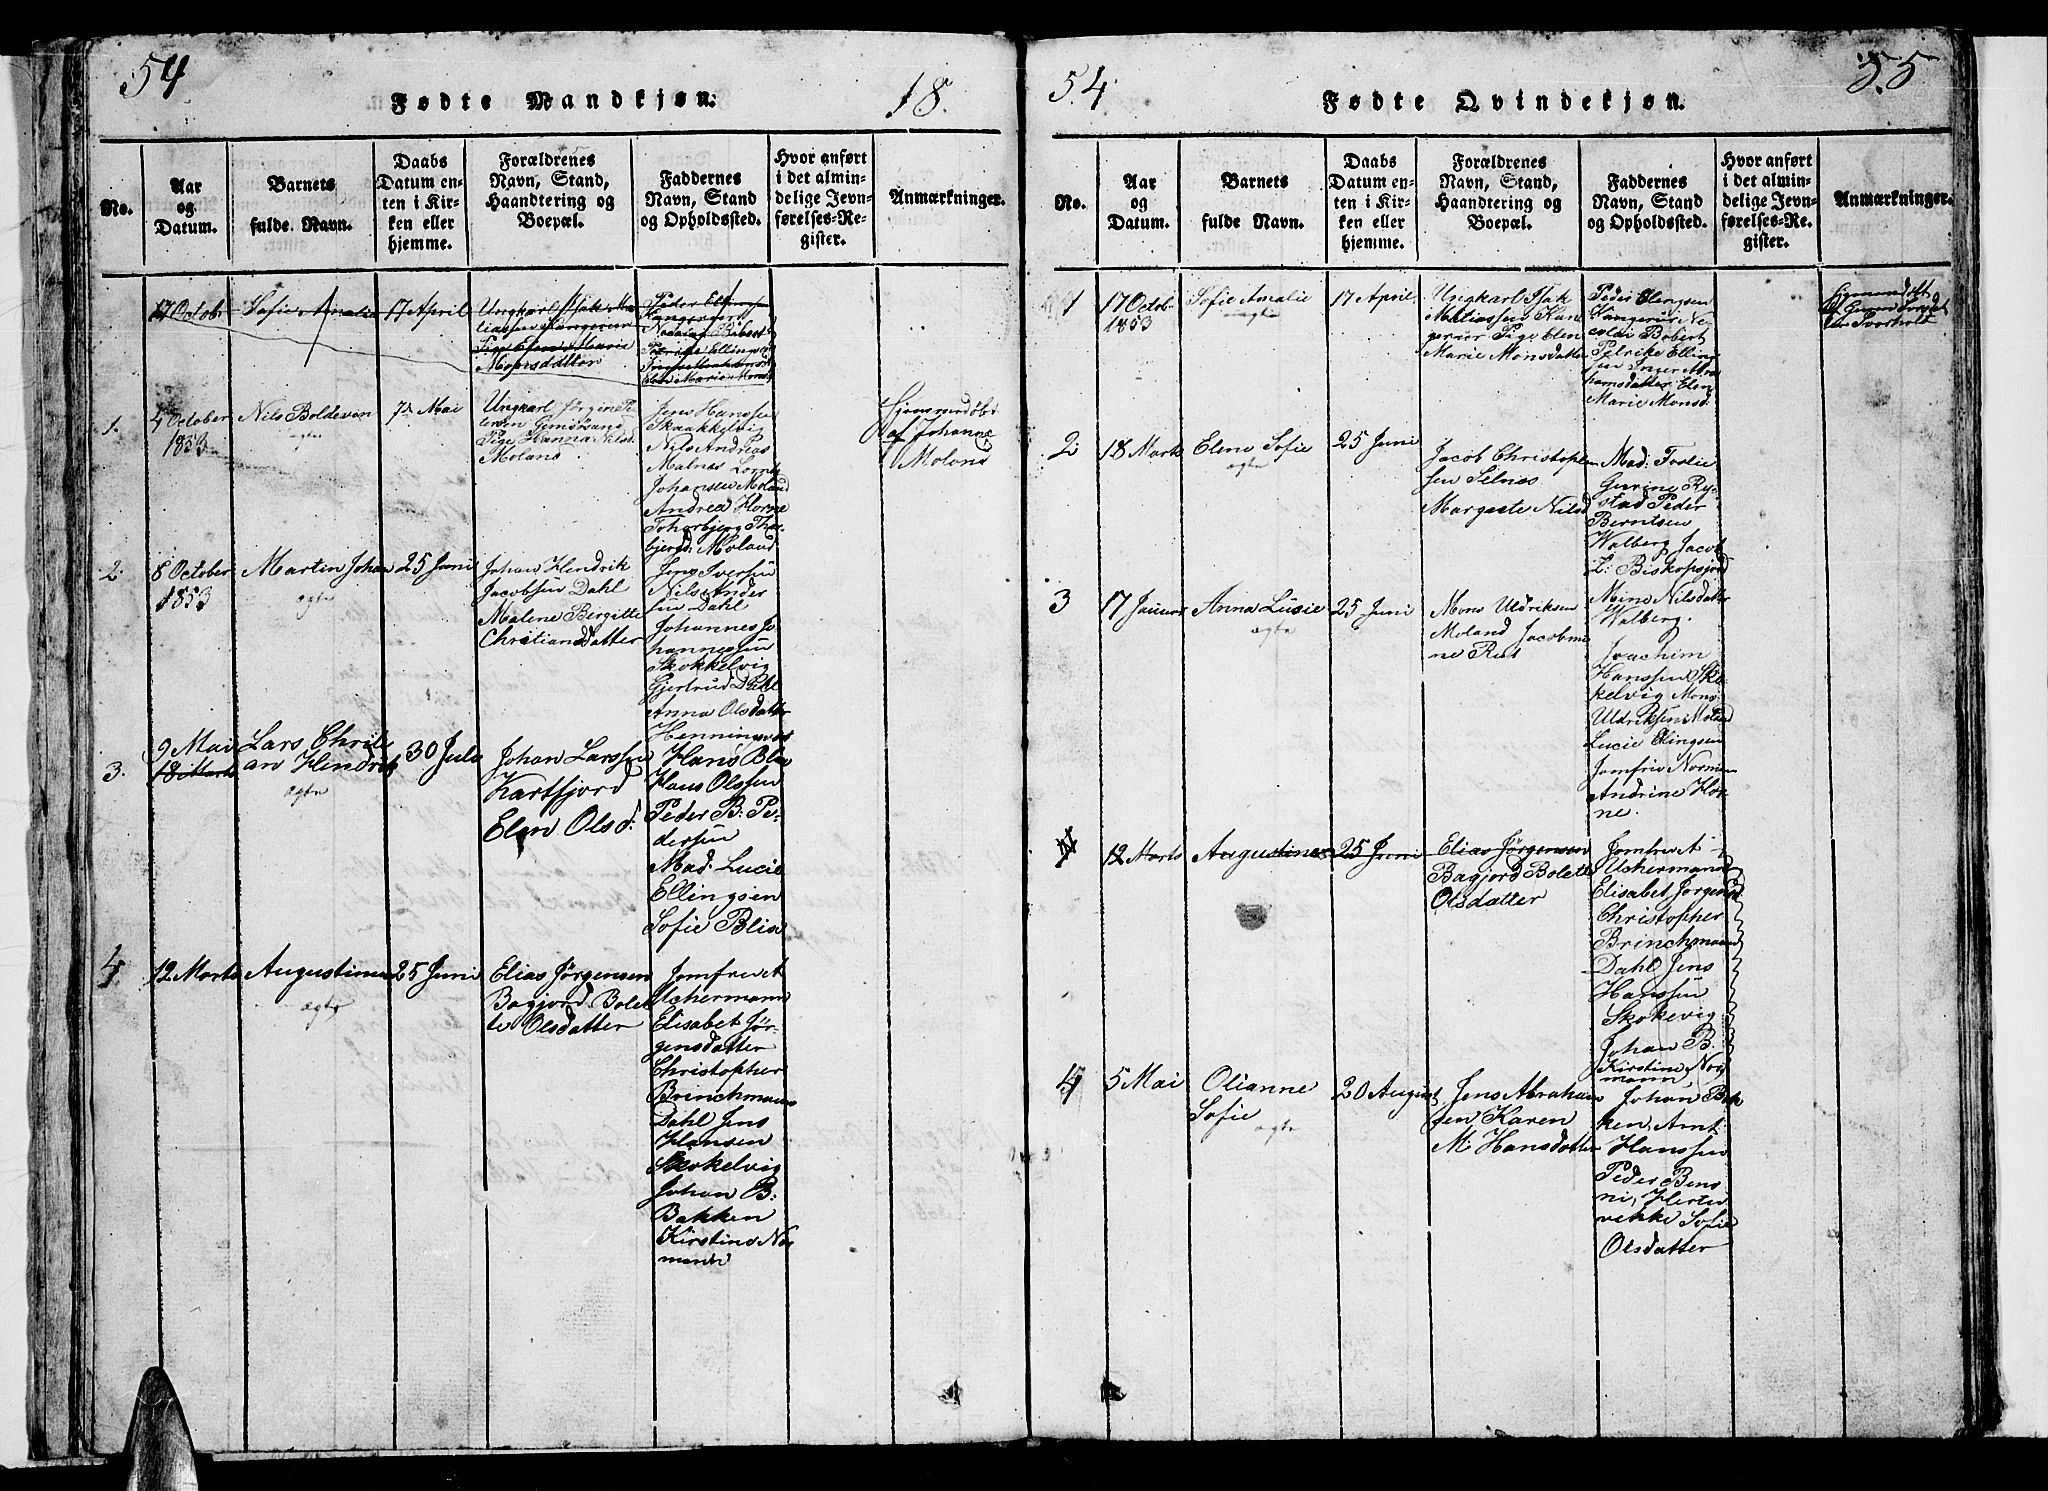 54
Fødte Mandkjøn.
18.
No.
Aar
og
Datum.
Barnets
fulde Navn.
Daabs
Datum en-
ten i Kir-
ken eller
hjemme.
Forældrenes
Navn, Stand,
Haandtering og
Boepæl.
Faddernes
Navn, Stand
og Opholdssted.
Hvor anført
i det almin-
delige Jevn-
førelses-Re-
gister.
Anmærkninger.
17 Octobr
Sofie Amalie
17 April
Ungkarl Isak Ma-
tiassen Kangerur
Pige Elen Marie
Monsdatter
Peder Ellingsen
Kangerur
Elen Marie Monsd
1.
4 October
1853
Nils Boldevin
ægte
7de Mai
Ungkarl Jørgine Pe-
tersen
Pige Hanna Nilsd.
Moland
Jens Hanssen
Skaakkelvig
Nils Andreas
Malnæs Lorns
Johansen Moland
Andrea Horne
Thorbjerg Thor-
bjergd: Moland
Hjemmedøbt
af Johannes
Moland
2.
8 October
1853
Martin Johan
ægte
25 Juni
Johan Hendrik
Jacobsen Dahl
Malene Bergitte
Christiansdatter
Jens Iversen
Nils Ander
sen Dahl
Johannes Jo
hannesen
Skokkelvig
Gjertrud Dahl
Anna Olsdatter
Henningvær
3.
9 Mai
18 Marts
Lars Christi
an Hendrik
ægte
30 Juli
Johan Larssen
Kartfjord
Elen Olsd:
Hans Blix
Hans Olssen
Peder B: Pe-
dersen
Mad: Lucie
Ellingsen
Sofie Blix
4.
12 Marts
Augustinus
ægte
25 Juni
Elias Jørgensen
Bogjord Bolet
te Olsdatter
Jomfru A
Uchermann
Elisabet Jør-
gensdatter
Christopher
Brinchmann
Dahl Jens
Hansen
Skokelvig
Johan B:
Bakken
Kirstine Nor
mann
54
Fødte Qvindekjøn.
55
No.
Aar
og
Datum.
Barnets
fulde Navn.
Daabs
Datum en-
ten i Kir-
ken eller
hjemme.
Forældrenes
Navn, Stand,
Haandtering og
Boepæl.
Faddernes
Navn, Stand
og Opholdssted.
Hvor anført
i det almin-
delige Jevn-
førelses-Re-
gister.
Anmærkninger.
1
17 Octob
1853
Sofie Amalie
uægte
17 April
Ungkarl Isak
Matiassen Kan
gerur Pige Elen
Marie Monsdatter
Peder Elingsen
Kangerur Ni
colai Robert
Petrike Elling
sen Inger Abra
hamsdatter Elen
Marie Monsd.
Hjemmedøbt
2
18 Marts
Elen Sofie
ægte
25 Juni
Jacob Christophe
sen Selnæs
Margrete Nilsd
Mad: Foslie
Gurine Ry-
stad Peder
Berntsen
Walberg Jacob
Z: Biskopsjord
Mina Nilsdatter
Walberg.
3
17 Januar
Anna Lusie
ægte
25 Juni
Mons Uldriksen
Moland Jacobmi
ne Rist
Joachim
Hanssen Sko
kelvig Mons
Uldriksen Moland
Lucie Elingsen
Jomfru Normann
Andrine Hor
ne.
4
12 Marts
Augustinus
25 Juni
Elias Jørgensen
Bagjord Bolette
Olsdatter
Jomfru A
Uchermann
Elisabet Jørgensd
Christopher
Brinchmann
Dahl Jens
Hanssen
Skokevig
Johan B.
Kirstine Nor
mann
4
5 Mai
Olianne
Sofie
ægte
20 August
Jens Abraham
sen Karen
M: Hansdatter
Johan Bak
ken, Amt
Hanssen
Peder Bens
ni, Herter
vikke Sofie
Olsdatter